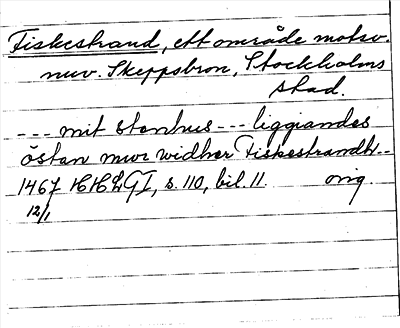 Fiskestrand, ett område motsv.
nuv. Skeppsbron, Stockholms
stad.
--- mit stenhus --- liggiandes
östan mwr widher Fiskestrandh ---
1467 HHLG I, s. 110, bil. 11. orig.
12/1